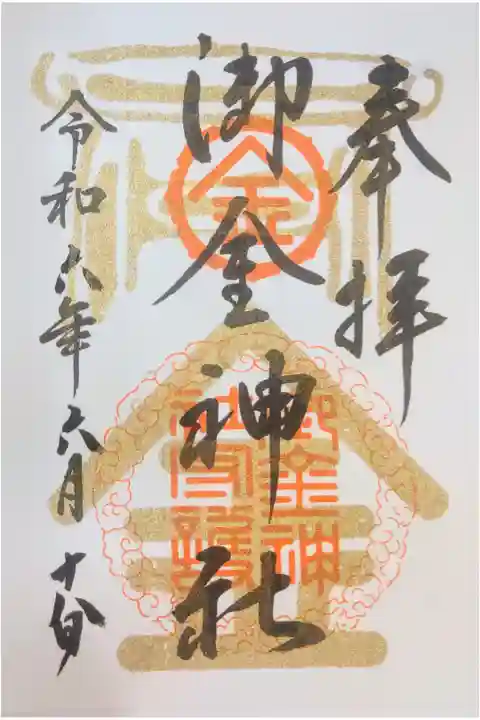 奉拝
御金神社
令和六年六月十八日
金
御金神